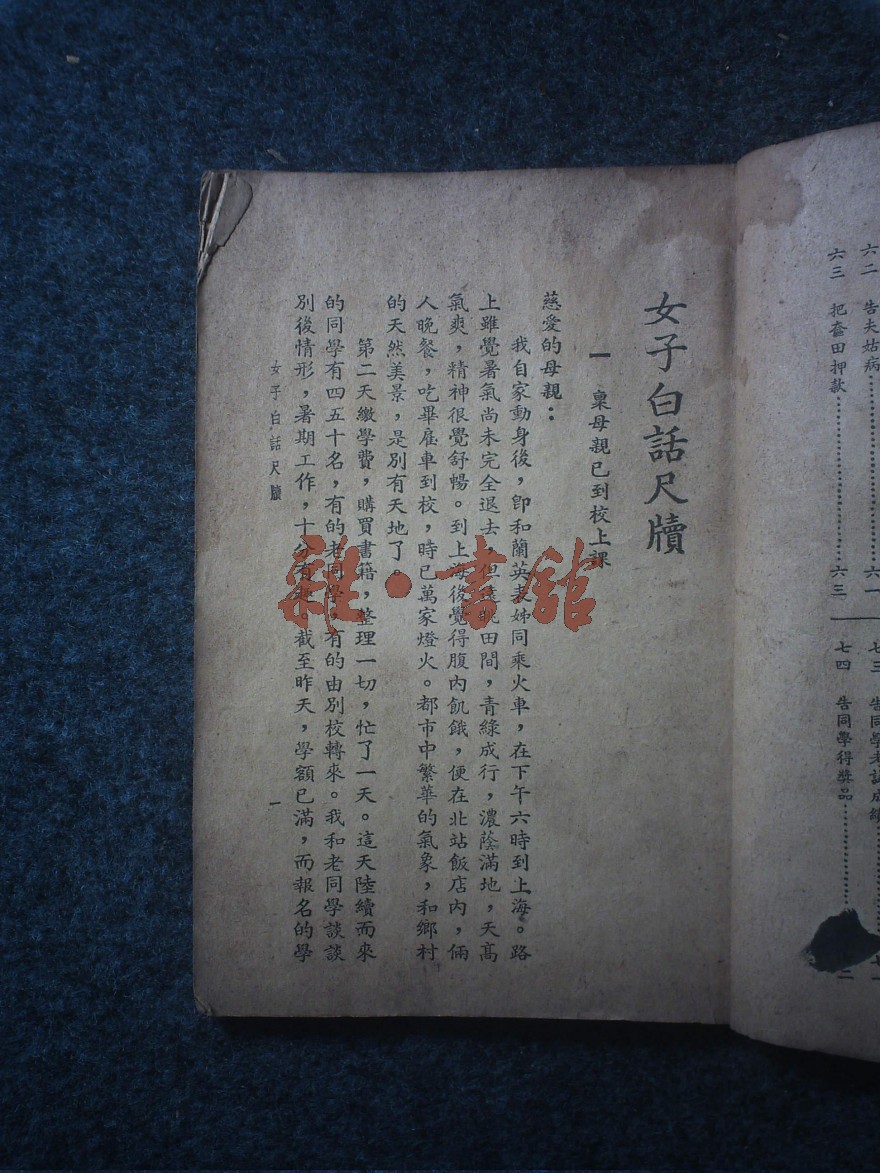 六二 告夫姑病 六一
六三 把奩田押款 六三
七三 告同學考試成績
七四 告同學得獎品 二
女子白話尺牘
一 稟母親已到校上課
慈愛的母親：
我自家動身後，卽和蘭英表姊同乘火車，在下午六時到上海。路
上雖覺暑氣尚未完全退去，但遠眺田間，青綠成行，濃蔭滿地，天高
氣爽，精神很覺舒暢。到上海後覺得腹內飢餓，便在北站飯店內，倆
人晚餐，吃畢雇車到校，時已萬家燈火。都市中繁華的氣象，和鄉村
的天然美景，是別有天地了。
第二天繳學費，購買書籍，整理一切，忙了一天。這天陸續而來
的同學有四五十名，有的老同學，有的由別校轉來。我和老同學談談
別後情形，暑期工作，十分有。截至昨天，學額已滿，而報名的學
女子白話尺牘
一
雜·書館